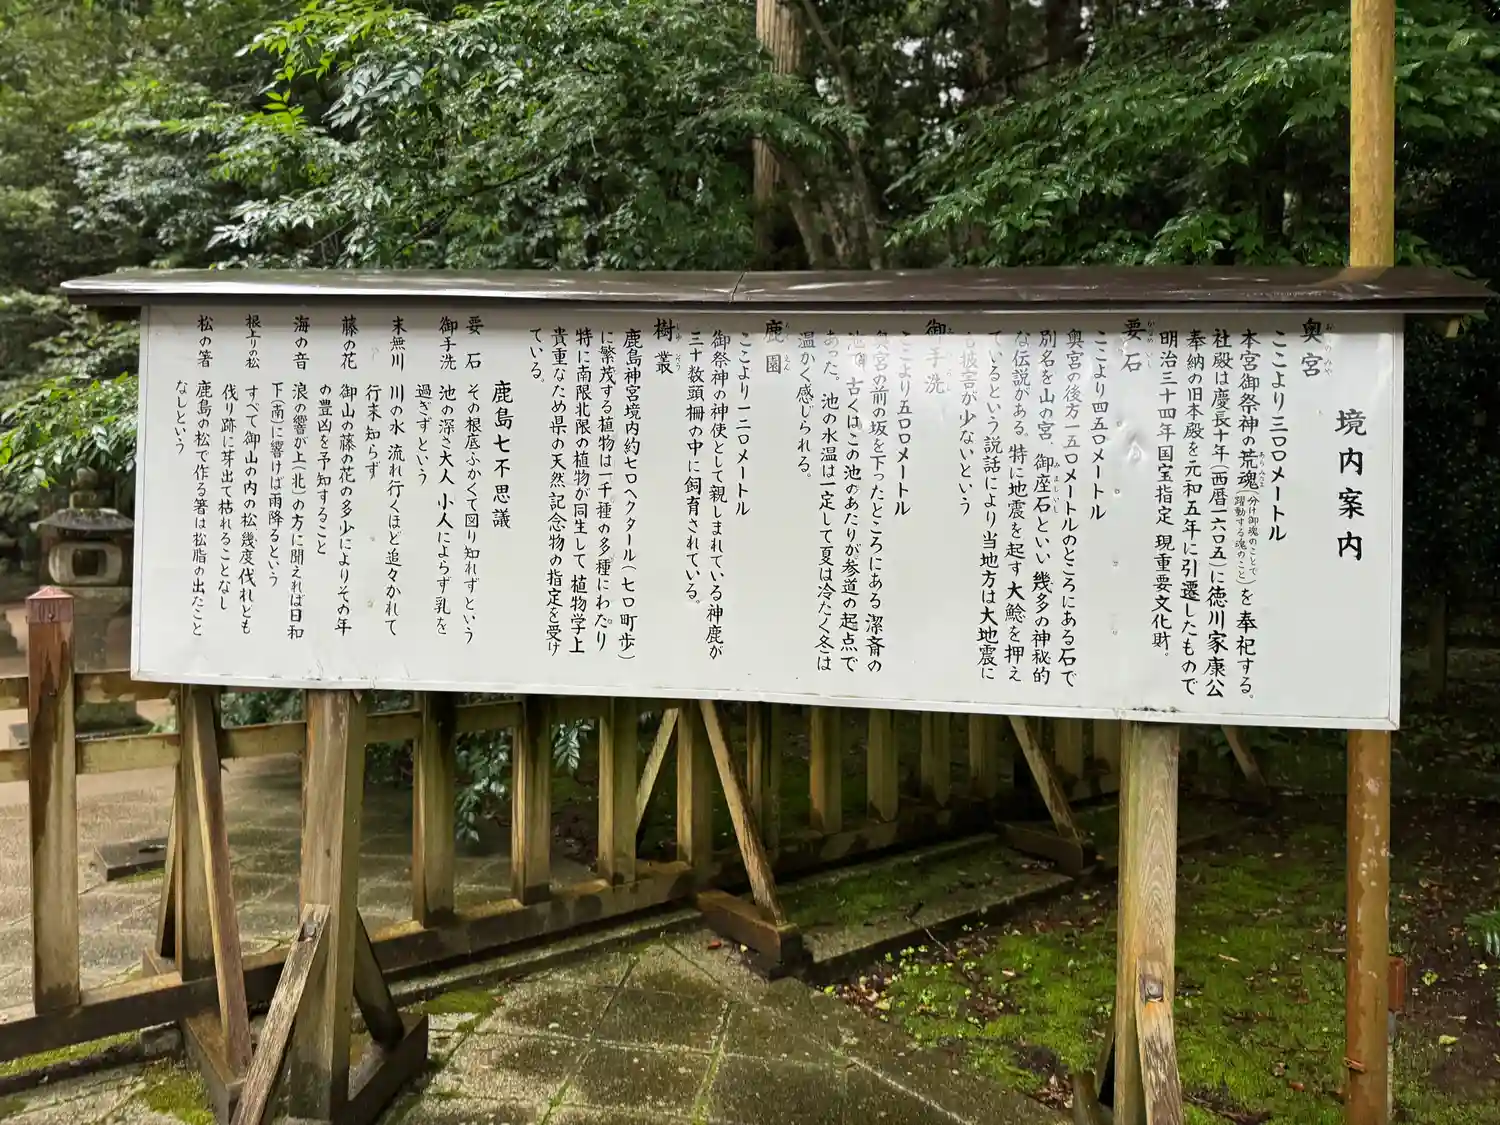 境内案内
奥宮
ここより三〇〇メートル
本宮御祭神の荒魂(分け御魂のことで躍動する魂のこと)を奉祀する。
社殿は慶長十年(西暦一六〇五)に徳川家康公
奉納の旧本殿を元和五年に引遷したもので
明治三十四年国宝指定 現重要文化財。
要石
ここより四五〇メートル
奥宮の後方一五〇メートルのところにある石で
別名を山の宮、御座石といい 幾多の神秘的
な伝説がある。特に地震を起す大鯰を押え
ているという説話により当地方は大地震に
も被害が少ないという
御手洗
ここより五〇〇メートル
奥宮の前の坂を下ったところにある 潔斎の
池で 古くはこの池のあたりが参道の起点で
あった。池の水温は一定して夏は冷たく冬は
温かく感じられる。
鹿園
ここより一二〇メートル
御祭神の神使として親しまれている神鹿が
三十数頭柵の中に飼育されている。
樹叢
鹿島神宮境内約七〇ヘクタール(七〇町歩)
に繁茂する植物は一千種の多種にわたり
特に南限北限の植物が同生して 植物学上
貴重なため県の天然記念物の指定を受け
ている。
鹿島七不思議
要石 その根底ふかくて図り知れずという
御手洗 池の深さ大人 小人によらず乳を
過ぎずという
末無川 川の水 流れ行くほど追々かれて
行末知らず
藤の花 御山の藤の花の多少によりその年
の豊凶を予知すること
海の音 浪の響が上(北)の方に聞えれば日和
下(南)に響けば雨降るという
根上りの松 すべて御山の内の松幾度伐れとも
伐り跡に芽出て枯れることなし
松の箸 鹿島の松で作る箸は松脂の出たこと
なしという